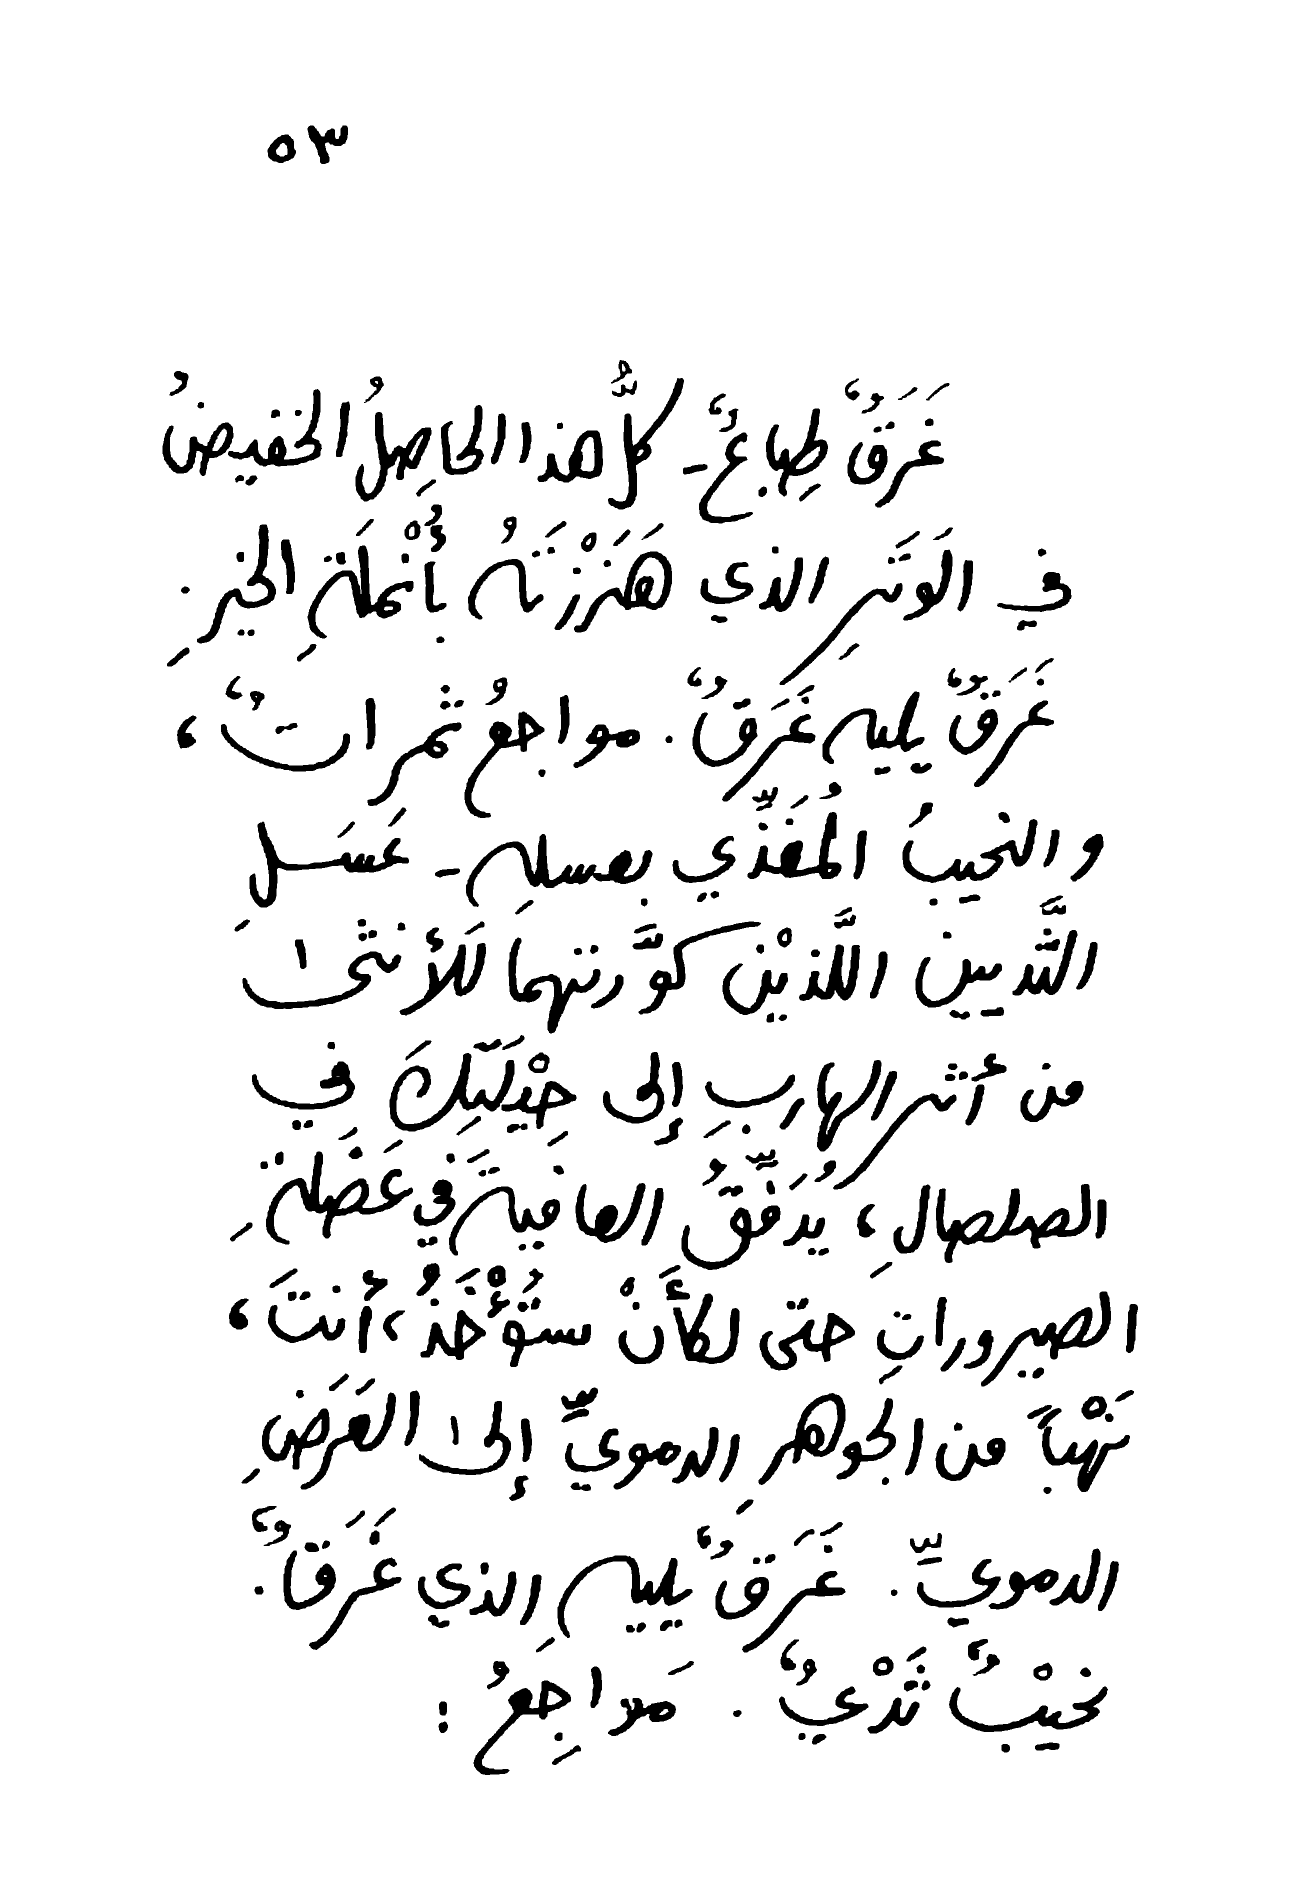 ٥٣
غَرَقٌ طِباعٌ - كلُّ هذا الحاصِلُ الخفيضُ
في الوَتَرِ الذي هَزَزْتَهُ بأُنْملَةِ الخيرِ.
غَرَقٌ يليه غَرَقٌ. مواجعُ ثمراتٌ،
والنحيبُ المُغَذِّي بعسلِهِ - عَسَلِ
الثَّديين اللَّذيْن كوَّرتهما للأنثى
من أثر الهاربِ إلى حِيْلَتِكَ في
الصلصالِ، يُدَفِّقُ العافيةَ في عَضَلَةِ
الصيروراتِ حتى لكأَنْ ستُؤْخَذُ، أنتَ،
نَهْباً من الجوهرِ الدمويِّ إلى العَرَضِ
الدمويِّ. غَرَقٌ يليهِ الذي غَرَقاٌ.
نحيْبٌ ثَدْيٌ. مَواجِعُ: